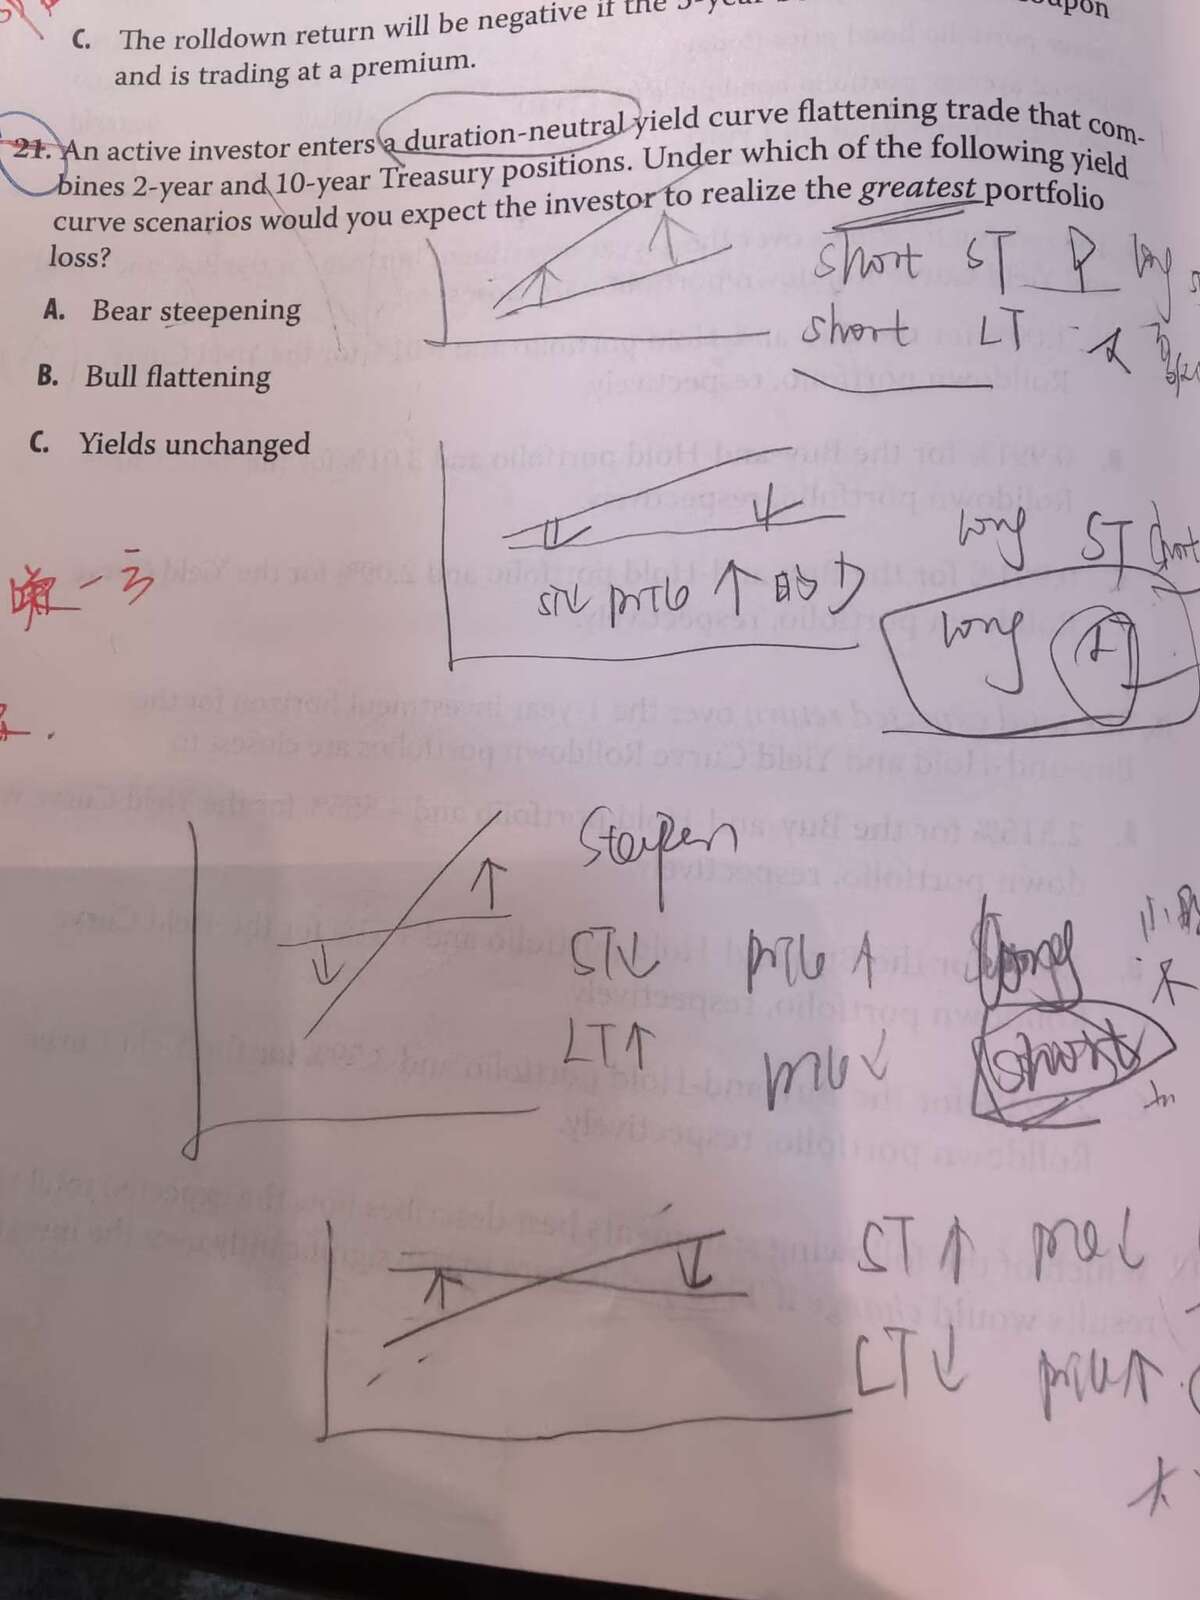 C. The rolldown return will be negative if the
and is trading at a premium.
21. An active investor enters a duration-neutral yield curve flattening trade that com-
bines 2-year and 10-year Treasury positions. Under which of the following yield
curve scenarios would you expect the investor to realize the greatest portfolio
loss?
short ST D long
A. Bear steepening
short LT
B. Bull flattening
C. Yields unchanged
long ST short
ST↓ price ↑ 的 D
long LT
Steepen
ST↓ price ↑ long
LT↑ price ↓ short
ST↑ price ↓
LT↓ price ↑